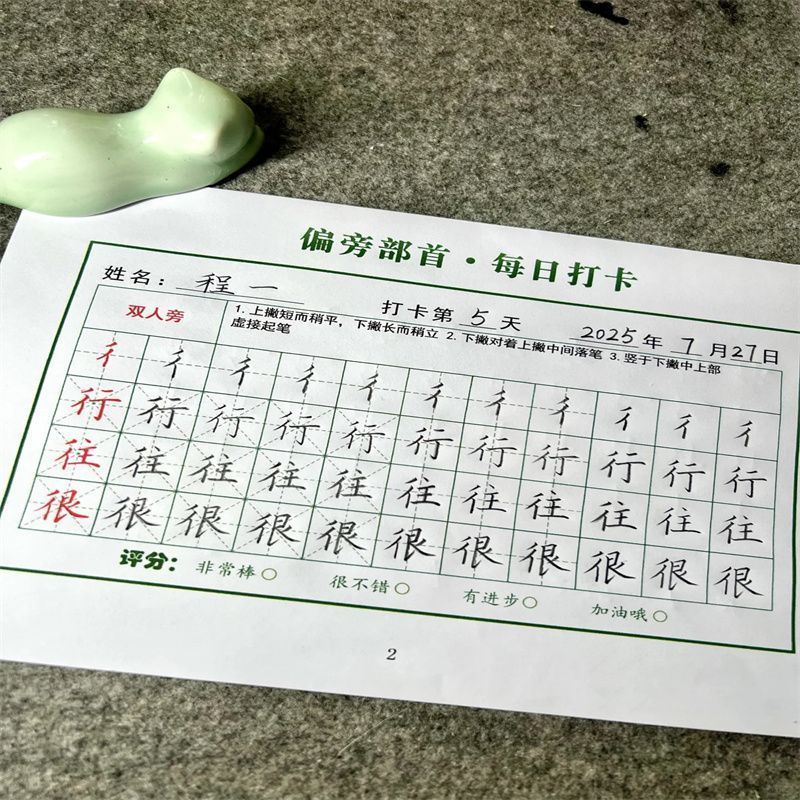 偏旁部首·每日打卡
姓名：程一 打卡第5天 2025年7月27日
双人旁
1.上撇短而稍平，下撇长而稍立 2.下撇对着上撇中间落笔 3.竖于下撇中上部
虚接起笔
彳彳彳彳彳彳彳彳彳彳彳
行行行行行行行行行行行
往往往往往往往往往往往
很很很很很很很很很很很
评分： 非常棒○ 很不错○ 有进步○ 加油哦○
2